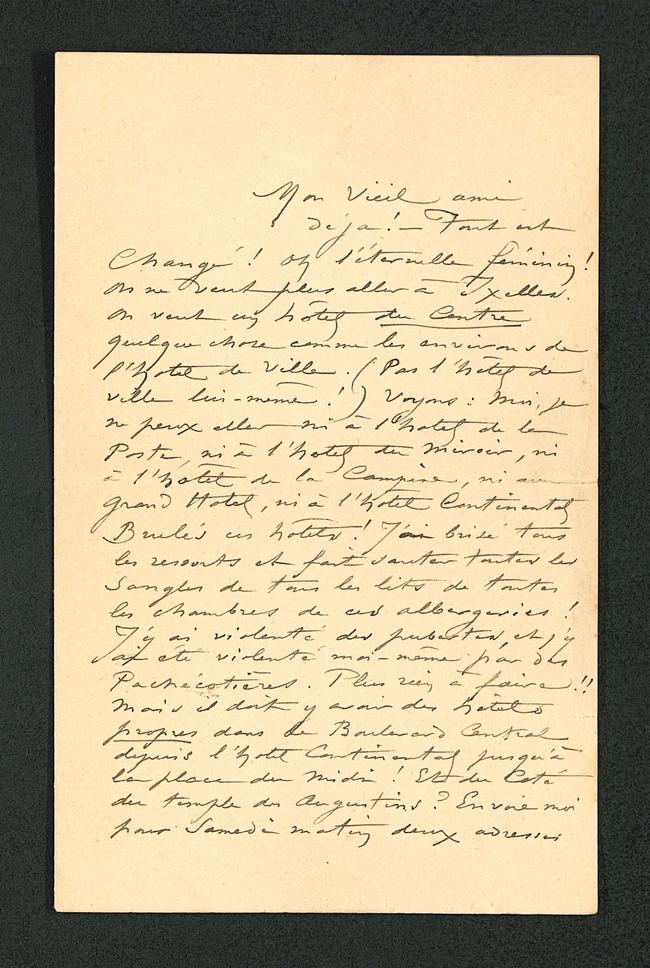 Mon Vieil ami
Déja! – Tout est
Changé! Oh l'éternelle féminin!
On ne veut plus aller à Ixelles.
On veut un hôtel du Centre
quelque chose comme les environs de
l'hotel de Ville. (Pas l'hôtel de
ville lui-même!) Voyons: Moi, je
ne peux aller ni à l'hotel de la
Poste, ni à l'hotel du Miroir, ni
à l'hôtel de la Campine, ni au
Grand Hotel, ni à l'hotel Continental
Brulés ces hôtels! J'ai brisé tous
les ressorts et fait sauter toutes les
Sangles de tous les lits de toutes
les chambres de ces albergeries!
J'y ai violenté des pubertes, et j'y
ai été violenté moi-même par des
Pachécotières. Plus rien à faire!!
Mais il doit y avoir des hôtels
propres dans le Boulevard Central
depuis l'hotel Continental jusqu'à
la place du Midi! Et du Coté
du temple des Augustins? Envoie moi
pour Samedi matin deux adresses